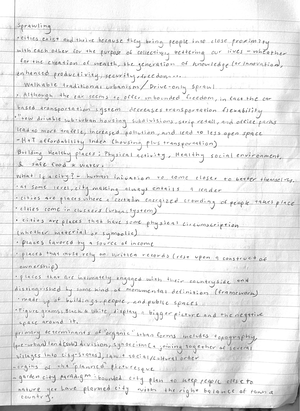 Sprawling
• Cities exist and thrive because they bring people into close proximity
with each other for the purpose of collectively bettering our lives - whether
for the expansion of wealth, the generation of knowledge (or innovation),
enhanced productivity, security, freedom....
Walkable traditional urbanism / Drive-only Sprawl
• Although the car seems to offer unbounded freedom, in fact the car
based transportation system decreases transportation
drivable sub-urban housing subdivisions, strip retail, and office parks
lead to more traffic, increased pollution, and lead to less open space
• H+T affordability index (housing plus transportation)
Building healthy places: Physical activity, Healthy social environment,
& safe food & water.
What is a city? - human
- at some level, city making always entails a
- cities are places where a certain energized crowding of people takes place
- cities come in clusters (urban system)
- cities are places that have some physical circumscription
(whether material or symbolic)
- places favored by a source of income
- places that must rely on written records
ownership)
- places that are intimately engaged with their countryside and
distinguished by some kind of monumental definition (framework)
- made up of buildings, people, and public spaces
• Figure ground: Black & white, display a bigger picture and the negative
space around it.
primary determinants of "organic" urban forms includes topography,
pre-urban land division, synoecism (a joining together of several
villages into city-states), law & social/cultural order
- origins of the planned picturesque
- garden city paradigm: bounded city plan to keep people close to
nature yet have planned city with the right balance of town &
country.